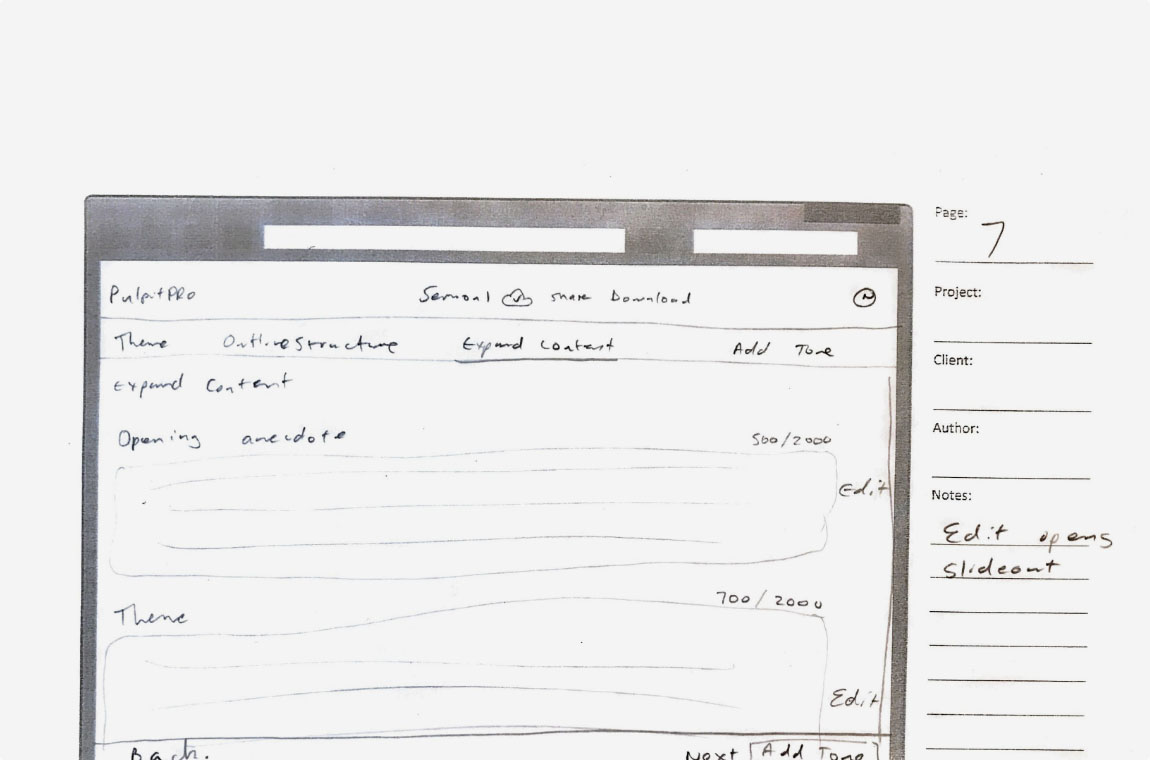 PulpitPRO Sermon1 Share Download N
Theme Outline Structure Expand Content Add Tone
Expand Content
Opening anecdote 500/2000
Edit
Theme 700/2000
Edit
Back. Next Add Tone
Page:
7
Project:
Client:
Author:
Notes:
Edit opens
slideout